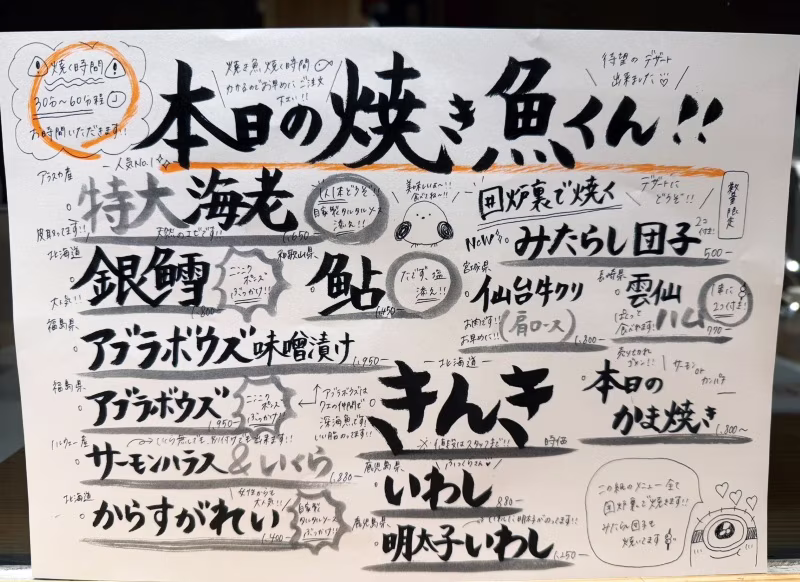 焼く時間
30分〜60分程
お時間いただきます!!
焼き魚 焼く時間
かかるのでお早めに ご注文
下さい!!
待望の デザート
出来ました♡
本日の焼き魚くん!!
人気No.1
アラスカ産
特大海老
1人1本どうぞ!!
自家製タルタルソース
添え!!
皮取ってます!!
天然のエビです!!
1,650-
美味しいよ〜!!
食べてね〜!!
囲炉裏で焼く
デザートに
どうぞ!!
数量限定
NEW
みたらし団子
2コ
付き!
500-
北海道
銀鱈
ニンニク
ポンズ
ぶっかけ!!
大人気!!
1,800-
和歌山県
鮎
たです、塩
添え!!
1,450-
宮城県
仙台牛クリ
(肩ロース)
お肉です!!
お早めに!!
1,800-
長崎県
雲仙
ハム
1本に
2コ付き!
770-
福島県
アブラボウズ味噌漬け
1,950-
福島県
アブラボウズ
ニンニク
ポンズ
ぶっかけ!!
1,950-
アブラボウズは
クエの仲間で
深海魚です!
いい脂のってます!!
北海道
きんき
※値段はスタッフまで!!
時価
売り切れ
ゴメン!!
サーモン
or
カンパチ
本日の
かま焼き
1,800〜
ノルウェー産
いくら無しでもお付けでも出来ます!!
サーモンハラス&いくら
1,880-
北海道
からすがれい
女性からも
大人気!!
自家製
タルタルソース
ぶっかけ!!
1,400-
鹿児島県
いわし
ふっくらさん♡
880-
鹿児島県
いわしに明太子が入ってます!!
明太子いわし
1,250-
この紙のメニュー全て
囲炉裏で焼きます!!
みたらし団子も
焼いてます